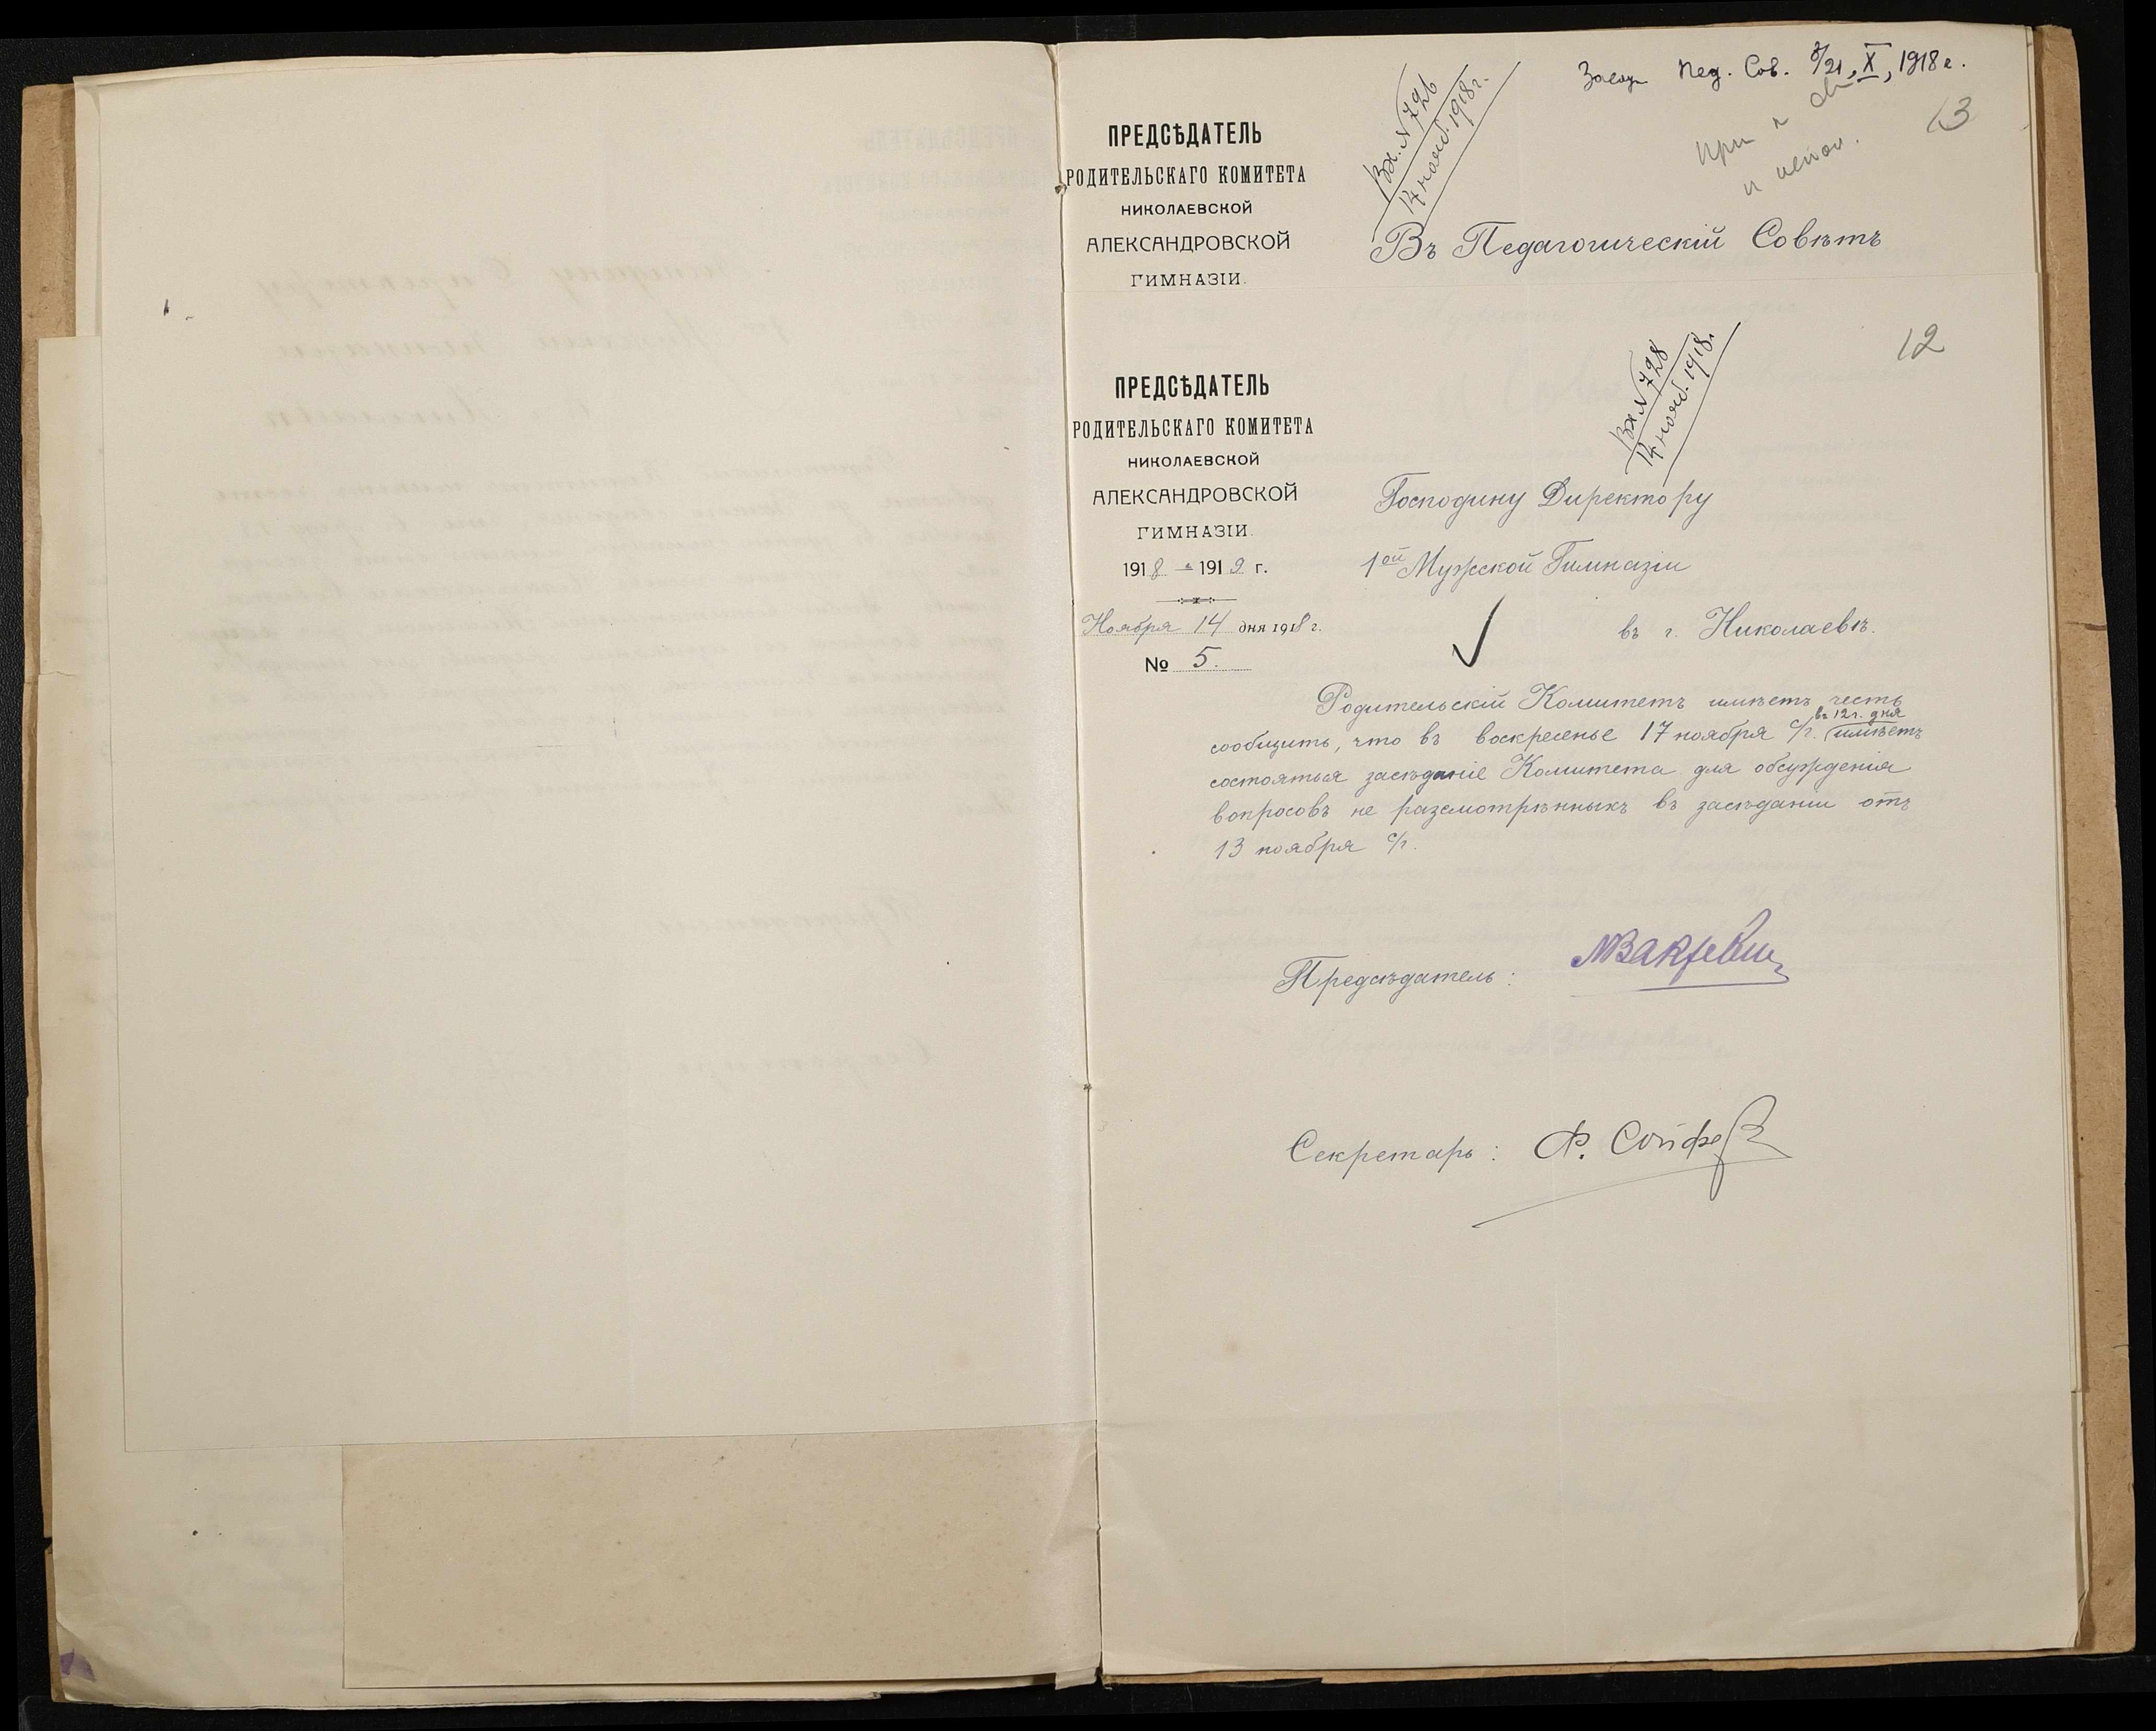 Засѣд. Пед. Сов. 8/21, X, 1918 г.
13
Вх. N 726
14 нояб. 1918 г.
ПРЕДСѢДАТЕЛЬ
РОДИТЕЛЬСКАГО КОМИТЕТА
НИКОЛАЕВСКОЙ
АЛЕКСАНДРОВСКОЙ
ГИМНАЗІИ.
Въ Педагогическій Совѣтъ
12
Вх N 728
14 нояб. 1918 г.
ПРЕДСѢДАТЕЛЬ
РОДИТЕЛЬСКАГО КОМИТЕТА
НИКОЛАЕВСКОЙ
АЛЕКСАНДРОВСКОЙ
ГИМНАЗІИ.
1918 - 1919 г.
Ноября 14 дня 1918 г.
№ 5.
Господину Директору
1ой Мужской Гимназіи
въ г. Николаевѣ.
Родительскій Комитетъ имѣетъ честь
сообщить, что въ воскресенье 17 ноября с/г. въ 12 г. дня имѣетъ
состояться засѣданіе Комитета для обсужденія
вопросовъ не разсмотрѣнныхъ въ засѣданіи отъ
13 ноября с/г.
Предсѣдатель:
Секретарь: Ф. Сойфер